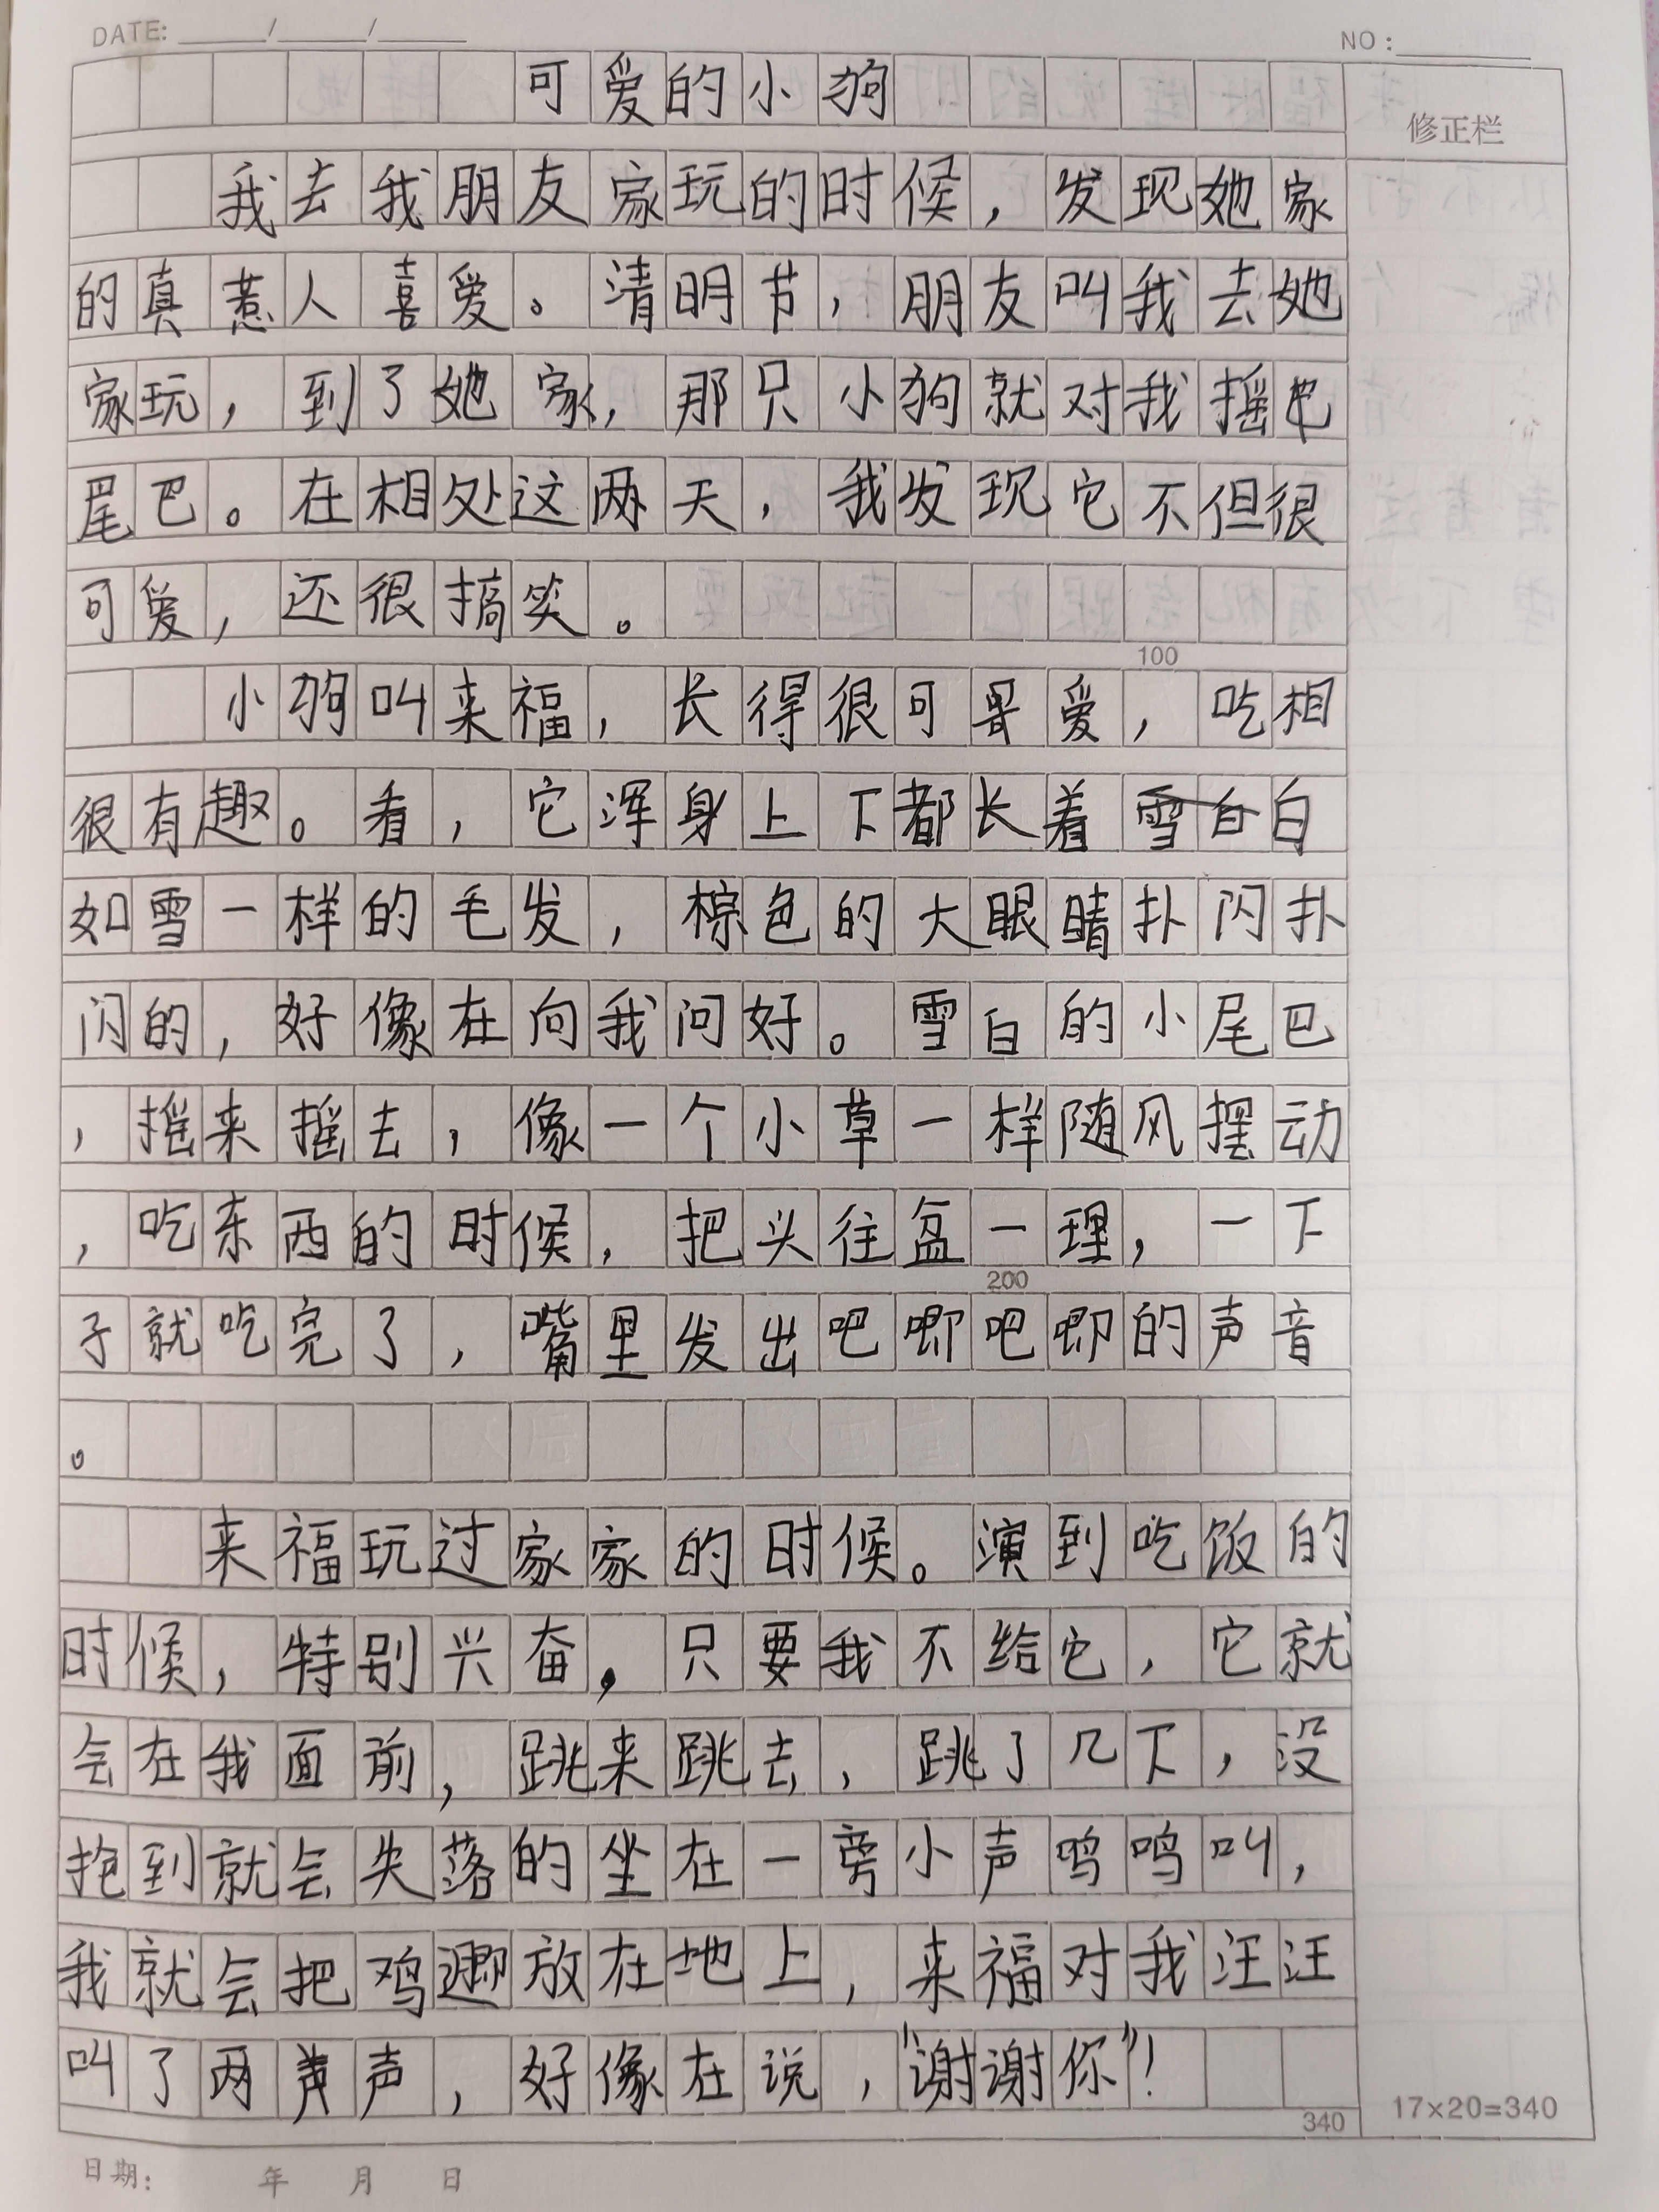 DATE: ______/______/______
NO：
可爱的小狗
修正栏
我去我朋友家玩的时候，发现她家
的真惹人喜爱。清明节，朋友叫我去她
家玩，到了她家，那只小狗就对我摇
尾巴。在相处这两天，我发现它不但很
可爱，还很搞笑。
100
小狗叫来福，长得很可爱，吃相
很有趣。看，它浑身上下都长着雪白白
如雪一样的毛发，棕色的大眼睛扑闪扑
闪的，好像在向我问好。雪白的小尾巴
，摇来摇去，像一个小草一样随风摆动
，吃东西的时候，把头往盆一理，一下
200
子就吃完了，嘴里发出吧唧吧唧的声音
。
来福玩过家家的时候。演到吃饭的
时候，特别兴奋，只要我不给它，它就
会在我面前，跳来跳去，跳了几下，没
抢到就会失落的坐在一旁小声呜呜叫，
我就会把鸡放在地上，来福对我汪汪
叫了两声，好像在说，“谢谢你”！
340
17×20=340
日期： 年 月 日